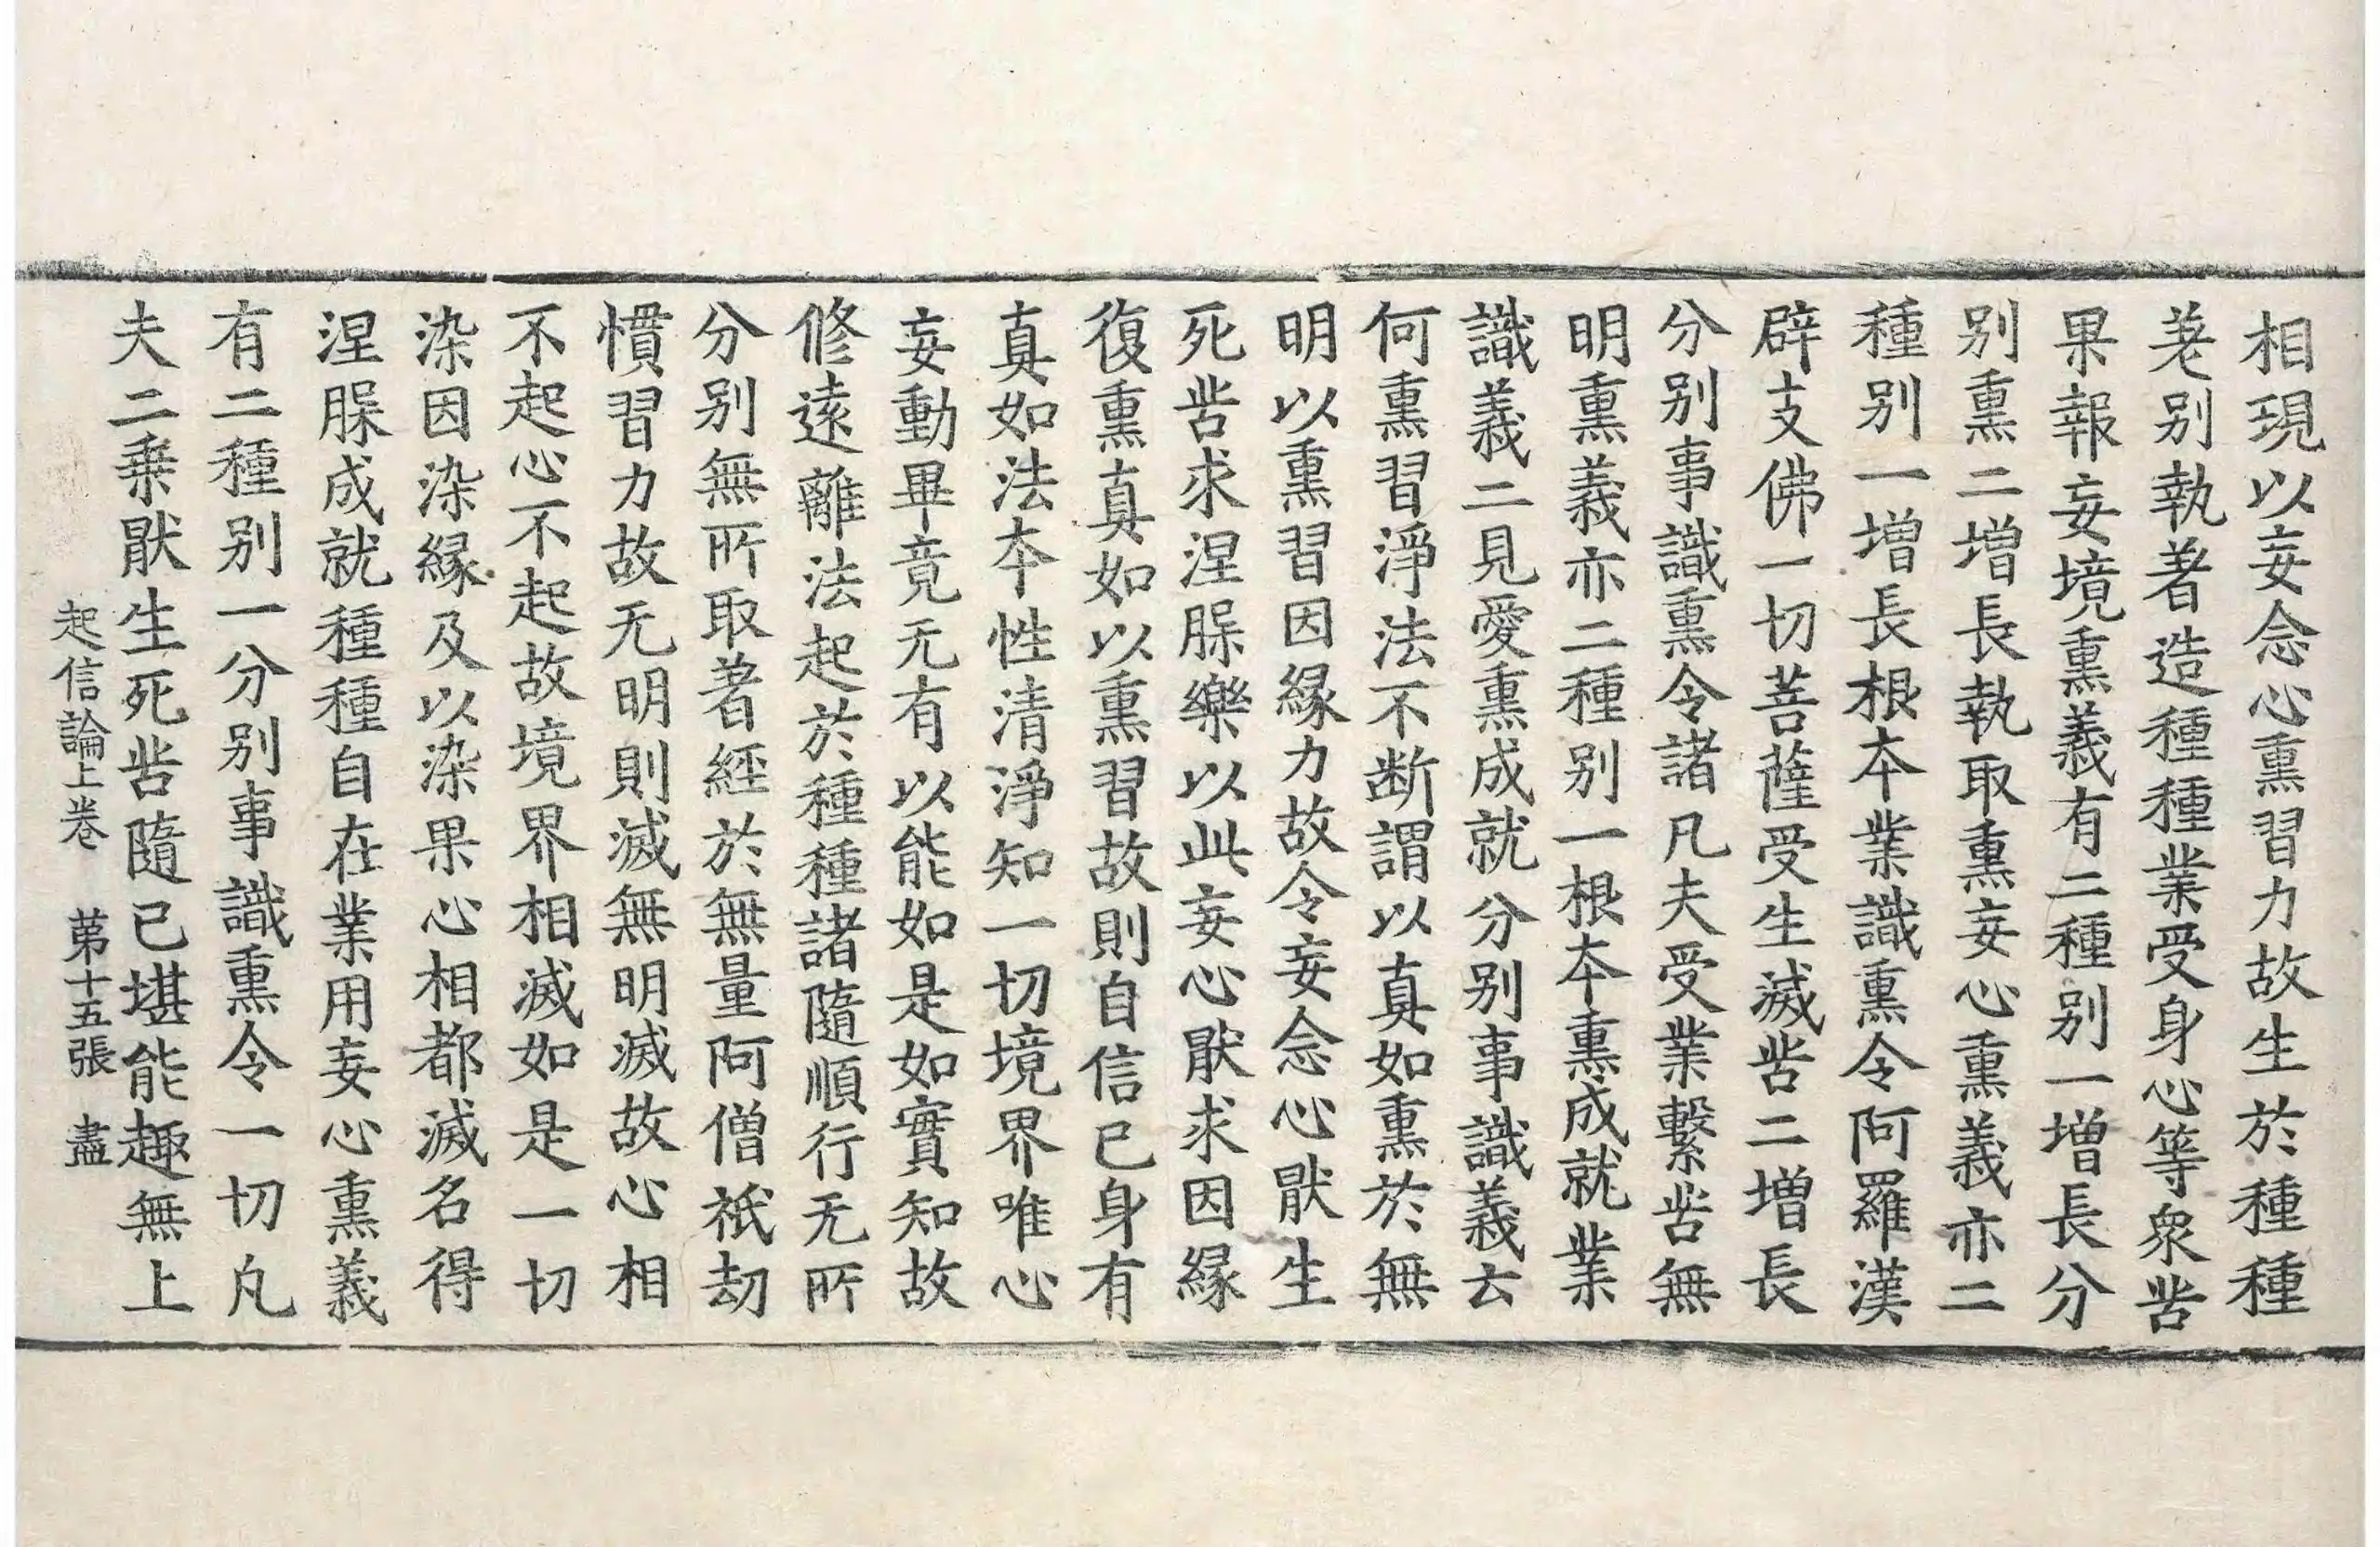 相現以妄念心熏習力故生於種種
差別執著造種種業受身心等衆苦
果報妄境熏義有二種別一增長分
別熏二增長執取熏妄心熏義亦二
種別一增長根本業識熏令阿羅漢
辟支佛一切菩薩受生滅苦二增長
分別事識熏令諸凡夫受業繫苦無
明熏義亦二種別一根本熏成就業
識義二見愛熏成就分別事識義云
何熏習淨法不断謂以真如熏於無
明以熏習因緣力故令妄念心猒生
死苦求涅槃樂以此妄心猒求因緣
復熏真如以熏習故則自信己身有
真如法本性清淨知一切境界唯心
妄動畢竟无有以能如是如實知故
修遠離法起於種種諸隨順行无所
分別無所取著經於無量阿僧祇劫
慣習力故无明則滅無明滅故心相
不起心不起故境界相滅如是一切
染因染緣及以染果心相都滅名得
涅槃成就種種自在業用妄心熏義
有二種別一分別事識熏令一切凡
夫二乗猒生死苦隨己堪能趣無上
起信論上卷　苐十五張　盡